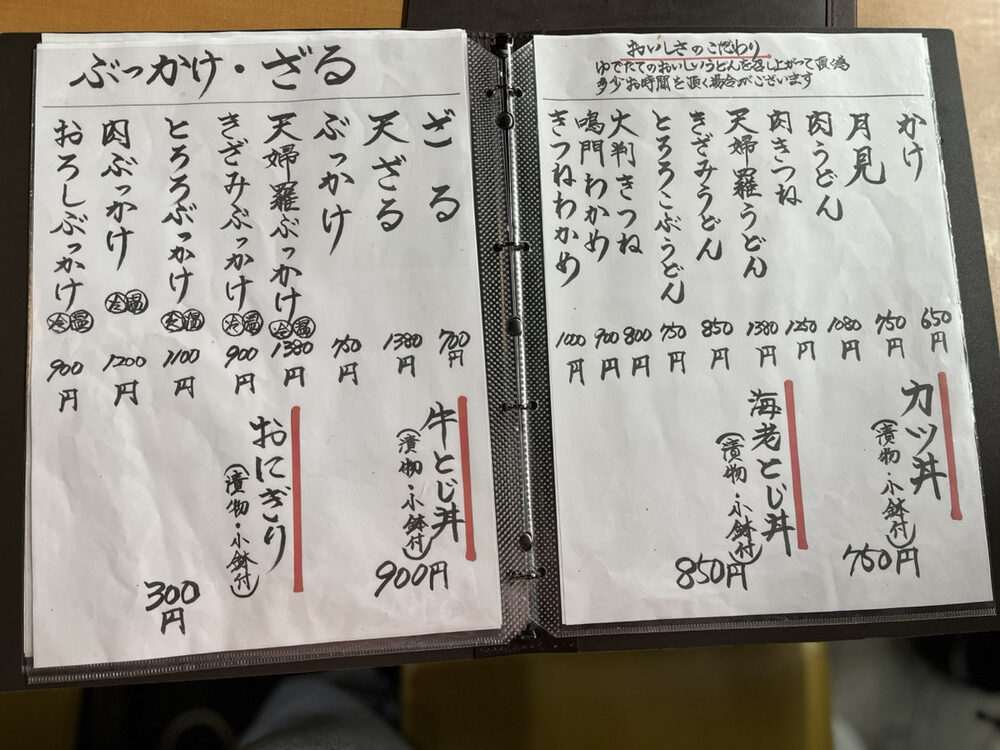 おいしさのこだわり
ゆでたてのおいしいうどんを召し上がって頂く為
多少お時間を頂く場合がございます
かけ 650円
月見 750円
肉うどん 1080円
肉きつね 1250円
天婦羅うどん 1380円
きざみうどん 850円
とろろこぶうどん 750円
大判きつね 800円
鳴門わかめ 900円
きつねわかめ 1000円
カツ丼
(漬物・小鉢付)
750円
海老とじ丼
(漬物・小鉢付)
850円
ぶっかけ・ざる
ざる 700円
天ざる 1380円
ぶっかけ 750円
天婦羅ぶっかけ 冷温 1380円
きざみぶっかけ 冷温 900円
とろろぶっかけ 冷温 1100円
肉ぶっかけ 冷温 1200円
おろしぶっかけ 冷温 900円
牛とじ丼
(漬物・小鉢付)
900円
おにぎり
(漬物・小鉢付)
300円